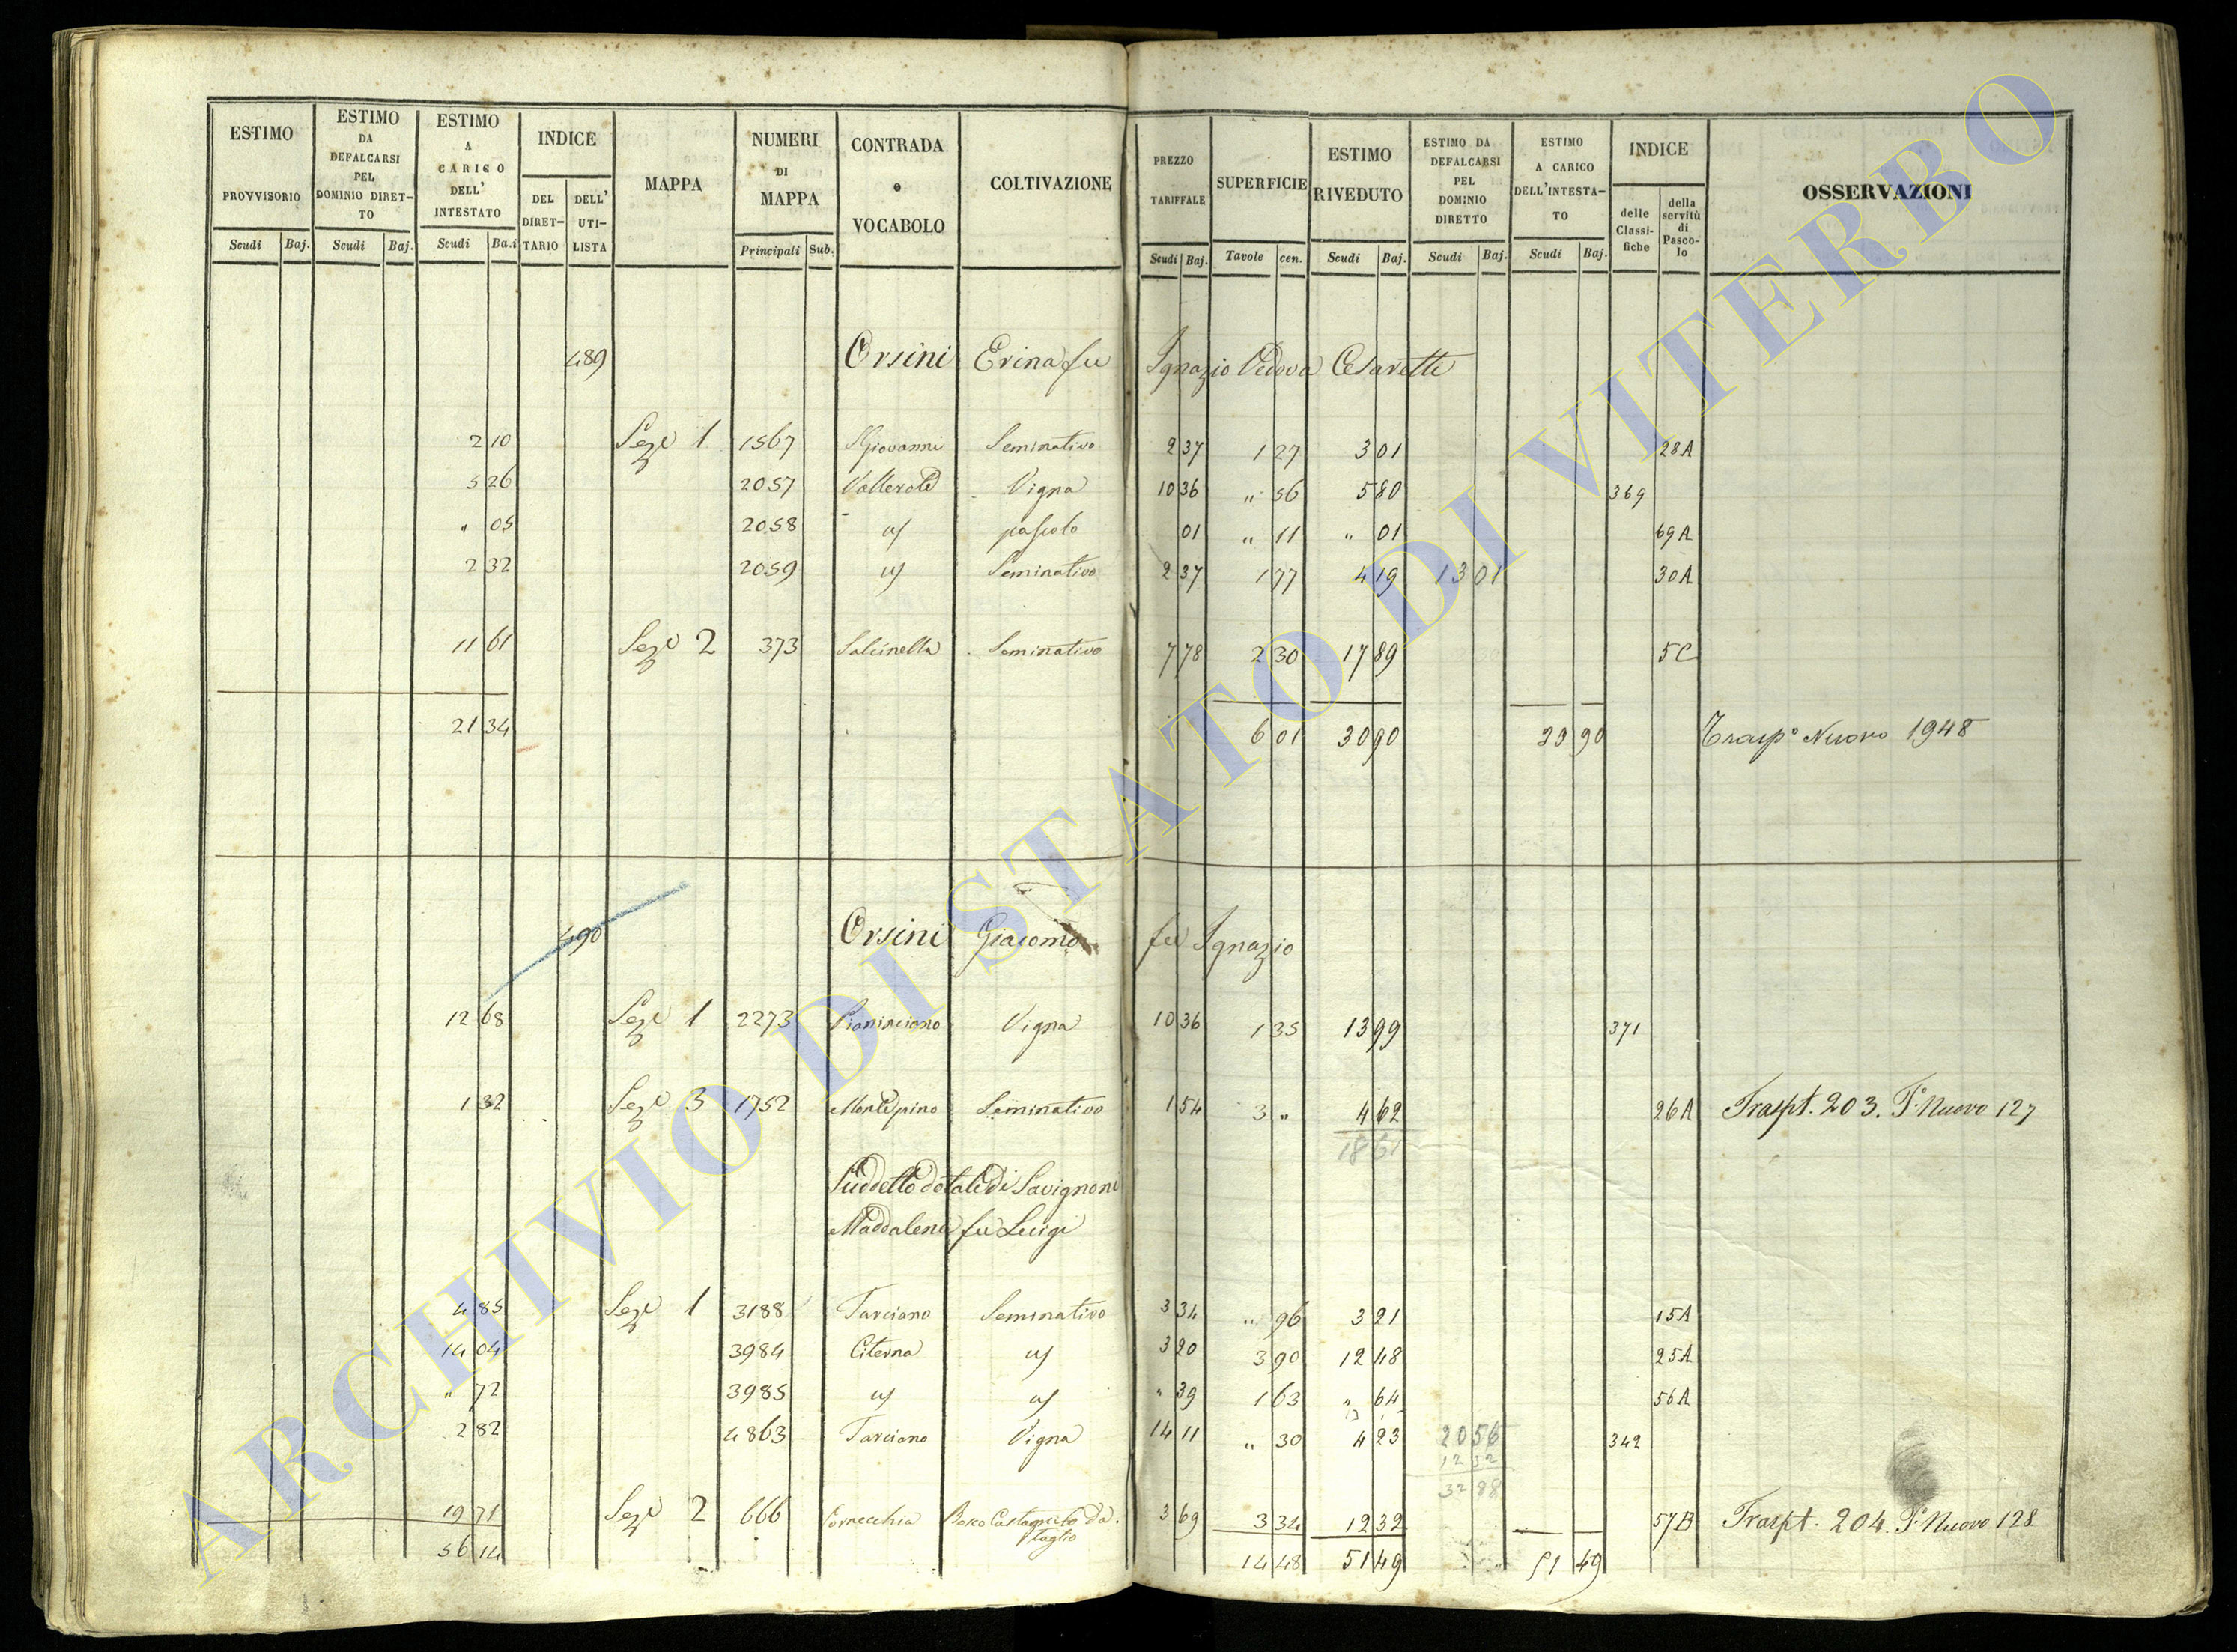 ESTIMO PROVVISORIO Scudi Baj.
ESTIMO DA DEFALCARSI PEL DOMINIO DIRET-TO Scudi Baj.
ESTIMO A CARICO DELL' INTESTATO Scudi Ba.i
INDICE DEL DIRET-TARIO DELL' UTI-LISTA
MAPPA
NUMERI DI MAPPA Principali Sub.
CONTRADA o VOCABOLO
COLTIVAZIONE
PREZZO TARIFFALE Scudi Baj.
SUPERFICIE Tavole cen.
ESTIMO RIVEDUTO Scudi Baj.
ESTIMO DA DEFALCARSI PEL DOMINIO DIRETTO Scudi Baj.
ESTIMO A CARICO DELL'INTESTA-TO Scudi Baj.
INDICE delle Classi-fiche della servitù di Pasco-lo
OSSERVAZIONI
489 Orsini Erina fu Ignazio Vedova Cesaretti
2 10 Sez.e 1 1567 S Giovanni Seminativo 2 37 1 27 3 01 28A
5 26 2057 Vallerate Vigna 10 36 " 56 5 80 369
" 05 2058 " pascolo 01 " 11 " 01 69A
2 32 2059 " Seminativo 2 37 1 77 4 19 13 01 30A
11 61 Sez.e 2 373 Salcinella Seminativo 7 78 2 30 17 89 5C
21 34 6 01 30 90 30 90 Trasp.o Nuovo 1948
490 Orsini Giacomo fu Ignazio
12 68 Sez.e 1 2273 Pianinciano Vigna 10 36 1 35 13 99 371
1 32 Sez.e 3 1752 Montepino Seminativo 1 54 3 " 4 62 26A Traspt. 203. P.o Nuovo 127
18 61
Suddetto dotale di Savignoni
Maddalena fu Luigi
4 85 Sez.e 1 3188 Tarciano Seminativo 3 34 " 96 3 21 15A
14 04 3984 Citerna " 3 20 3 90 12 48 25A
" 72 3985 " " " 39 1 63 " 64 56A
2 82 4863 Tarciano Vigna 14 11 " 30 4 23 20 56 342
12 32
32 88
19 71 Sez.e 2 666 Fornecchia Bosco Castagneto da taglio 3 69 3 34 12 32 57B Traspt. 204. P.o Nuovo 128
56 14 14 48 51 49 51 49
ARCHIVIO DI STATO DI VITERBO